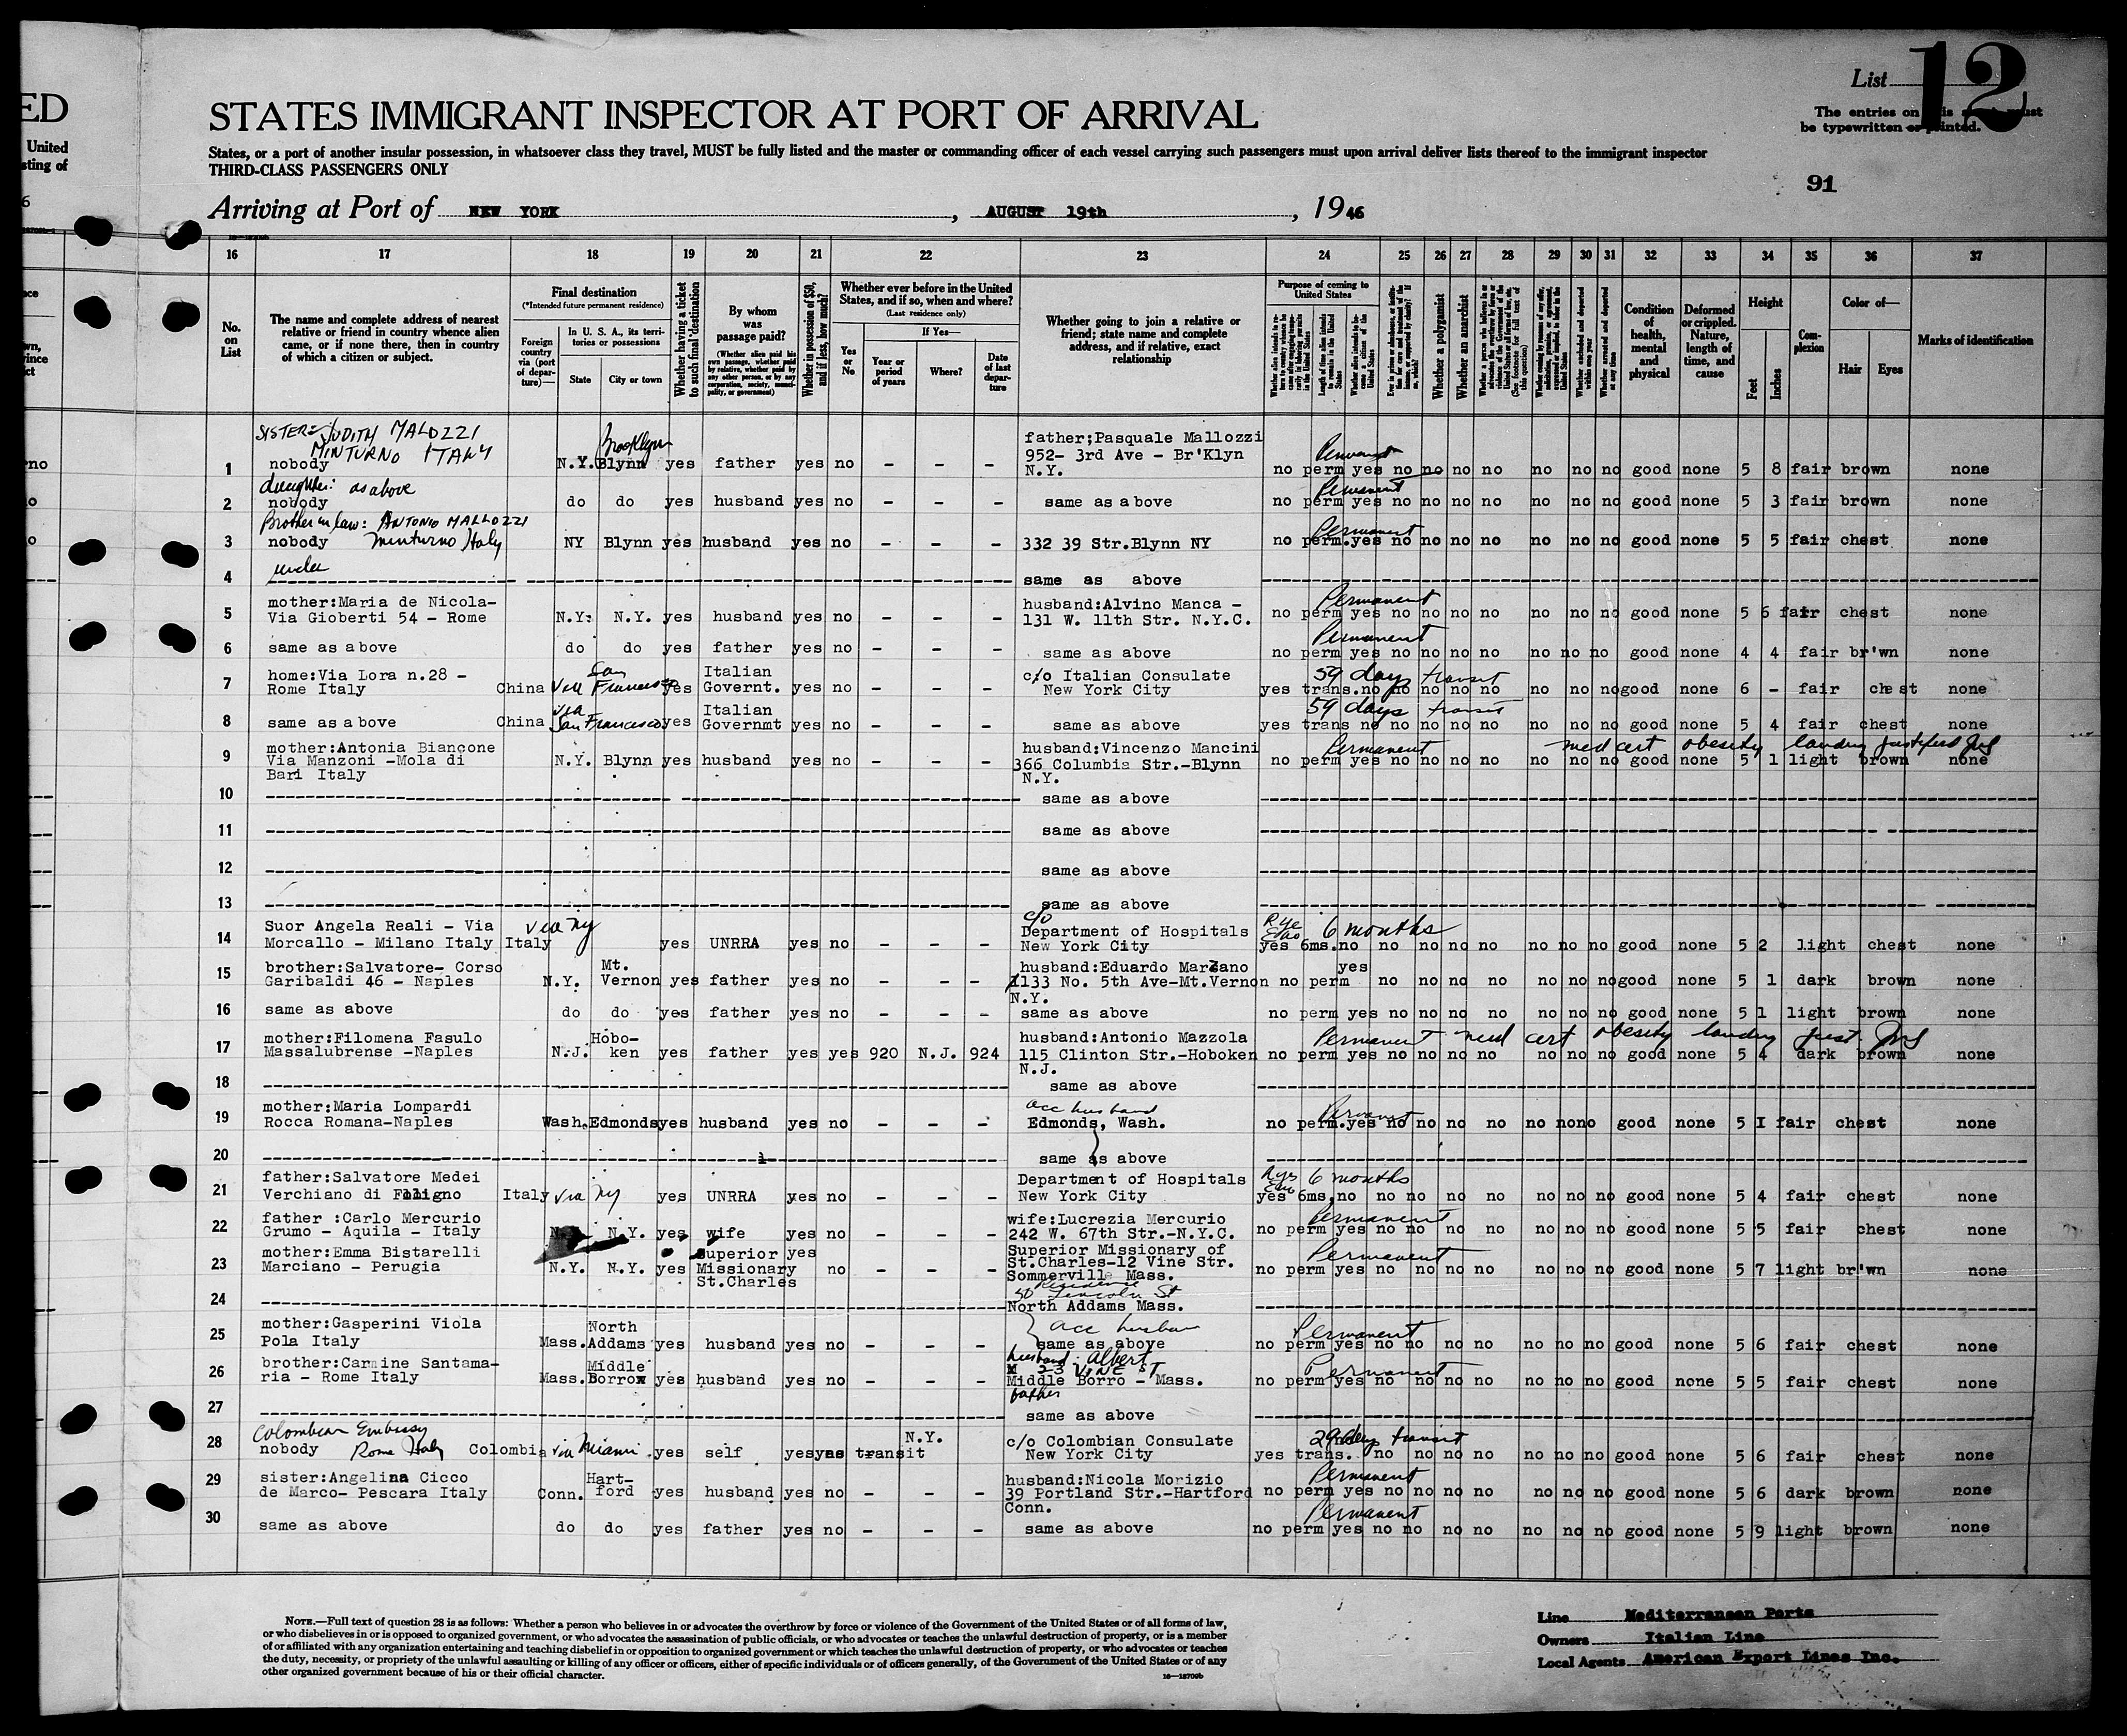 ED
United
sting of
6
List
12
The entries on this must
be typewritten or printed.
91
STATES IMMIGRANT INSPECTOR AT PORT OF ARRIVAL
States, or a port of another insular possession, in whatsoever class they travel, MUST be fully listed and the master or commanding officer of each vessel carrying such passengers must upon arrival deliver lists thereof to the immigrant inspector
THIRD-CLASS PASSENGERS ONLY
Arriving at Port of NEW YORK , AUGUST 19th , 1946
16 17 18 19 20 21 22 23 24 25 26 27 28 29 30 31 32 33 34 35 36 37
No. on List
The name and complete address of nearest relative or friend in country whence alien came, or if none there, then in country of which a citizen or subject.
Final destination
(*Intended future permanent residence)
Foreign country via (port of departure)—
In U. S. A., its territories or possessions
State City or town
Whether having a ticket to such final destination
By whom was passage paid?
(Whether alien paid his own passage, whether paid by relative, whether paid by any other person, or by any corporation, society, municipality, or government)
Whether in possession of $50, and if less, how much?
Whether ever before in the United States, and if so, when and where?
(Last residence only)
Yes or No
If Yes—
Year or period of years
Where?
Date of last departure
Whether going to join a relative or friend; state name and complete address, and if relative, exact relationship
Purpose of coming to United States
Whether a polygamist
Whether an anarchist
Condition of health, mental and physical
Deformed or crippled. Nature, length of time, and cause
Height
Feet Inches
Complexion
Color of—
Hair Eyes
Marks of identification
SISTER: JUDITH MALOZZI
MINTURNO ITALY Brooklyn father;Pasquale Mallozzi
952- 3rd Ave - Br'Klyn Permanent
1 nobody N.Y. Blynn yes father yes no - - - N.Y. no perm yes no no no no no no no good none 5 8 fair brown none
daughter: as above Permanent
2 nobody do do yes husband yes no - - - same as above no perm yes no no no no no no no good none 5 3 fair brown none
Brother in law: ANTONIO MALLOZZI Permanent
3 nobody Minturno Italy NY Blynn yes husband yes no - - - 332 39 Str.Blynn NY no perm.yes no no no no no no no good none 5 5 fair chest none
under
4 same as above
mother:Maria de Nicola- husband:Alvino Manca - Permanent
5 Via Gioberti 54 - Rome N.Y: N.Y. yes husband yes no - - - 131 W. 11th Str. N.Y.C. no perm yes no no no no no no no good none 5 6 fair chest none
Permanent
6 same as above do do yes father yes no - - - same as above no perm yes no no no no no no no good none 4 4 fair br'wn none
home:Via Lora n.28 - San Italian c/o Italian Consulate 59 days transit
7 Rome Italy China via Francisco yes Governt. yes no - - - New York City yes trans.no no no no no no no no good none 6 - fair chest none
via Italian 59 days transit
8 same as above China San Francisco yes Governmt yes no - - - same as above yes trans no no no no no no no no good none 5 4 fair chest none
mother:Antonia Biancone husband:Vincenzo Mancini Permanent med cert obesity landing justified
9 Via Manzoni -Mola di N.Y. Blynn yes husband yes no - - - 366 Columbia Str.-Blynn no perm yes no no no no no no no good none 5 1 light brown none
Bari Italy N.Y.
10 same as above
11 same as above
12 same as above
13 same as above
Suor Angela Reali - Via via NY c/o
Department of Hospitals 6 months
14 Morcallo - Milano Italy Italy yes UNRRA yes no - - - New York City yes 6ms.no no no no no no no no good none 5 2 light chest none
brother:Salvatore- Corso Mt. husband:Eduardo Marzano yes
15 Garibaldi 46 - Naples N.Y. Vernon yes father yes no - - - 1133 No. 5th Ave-Mt.Vernon no perm no no no no no no no good none 5 1 dark brown none
N.Y.
16 same as above do do yes father yes no - - - same as above no perm yes no no no no no no no good none 5 1 light brown none
mother:Filomena Fasulo Hobo- husband:Antonio Mazzola Permanent med cert obesity landing just
17 Massalubrense -Naples N.J. ken yes father yes yes 920 N.J. 924 115 Clinton Str.-Hoboken no perm yes no no no no no no no good none 5 4 dark brown none
N.J.
18 same as above
mother:Maria Lompardi acc husband Permanent
19 Rocca Romana-Naples Wash. Edmonds yes husband yes no - - - Edmonds, Wash. no perm.yes no no no no no no no good none 5 I fair chest none
20 same as above
father:Salvatore Medei Department of Hospitals 6 months
21 Verchiano di Foligno Italy via NY yes UNRRA yes no - - - New York City yes 6ms.no no no no no no no no good none 5 4 fair chest none
father :Carlo Mercurio wife:Lucrezia Mercurio Permanent
22 Grumo - Aquila - Italy N.Y. yes wife yes no - - - 242 W. 67th Str.-N.Y.C. no perm yes no no no no no no no good none 5 5 fair chest none
mother:Emma Bistarelli Superior yes Superior Missionary of Permanent
23 Marciano - Perugia N.Y. N.Y. yes Missionary no - - - St.Charles-12 Vine Str. no perm yes no no no no no no no good none 5 7 light br'wn none
St.Charles Sommerville Mass.
Residence
50 Lincoln St
24 North Addams Mass.
mother:Gasperini Viola North acc husban Permanent
25 Pola Italy Mass. Addams yes husband yes no - - - same as above no perm yes no no no no no no no good none 5 6 fair chest none
husband: Albert
brother:Carmine Santama- Middle 23 VINE ST Permanent
26 ria - Rome Italy Mass. Borrow yes husband yes no - - - Middle Borro - Mass. no perm yes no no no no no no no good none 5 5 fair chest none
father
27 same as above
Colombian Embassy N.Y. c/o Colombian Consulate 29 day transit
28 nobody Rome Italy Colombia via Miami yes self yes yes transit New York City yes trans. no no no no no no no good none 5 6 fair chest none
sister:Angelina Cicco Hart- husband:Nicola Morizio Permanent
29 de Marco- Pescara Italy Conn. ford yes husband yes no - - - 39 Portland Str.-Hartford no perm yes no no no no no no no good none 5 6 dark brown none
Conn. Permanent
30 same as above do do yes father yes no - - - same as above no perm yes no no no no no no no good none 5 9 light brown none
NOTE.—Full text of question 28 is as follows: Whether a person who believes in or advocates the overthrow by force or violence of the Government of the United States or of all forms of law,
or who disbelieves in or is opposed to organized government, or who advocates the assassination of public officials, or who advocates or teaches the unlawful destruction of property, or is a member
of or affiliated with any organization entertaining and teaching disbelief in or opposition to organized government or which teaches the unlawful destruction of property, or who advocates or teaches
the duty, necessity, or propriety of the unlawful assaulting or killing of any officer or officers, either of specific individuals or of officers generally, of the Government of the United States or of any
other organized government because of his or their official character.
16—18709b
Line Mediterranean Ports
Owners Italian Line
Local Agents American Export Lines Inc.